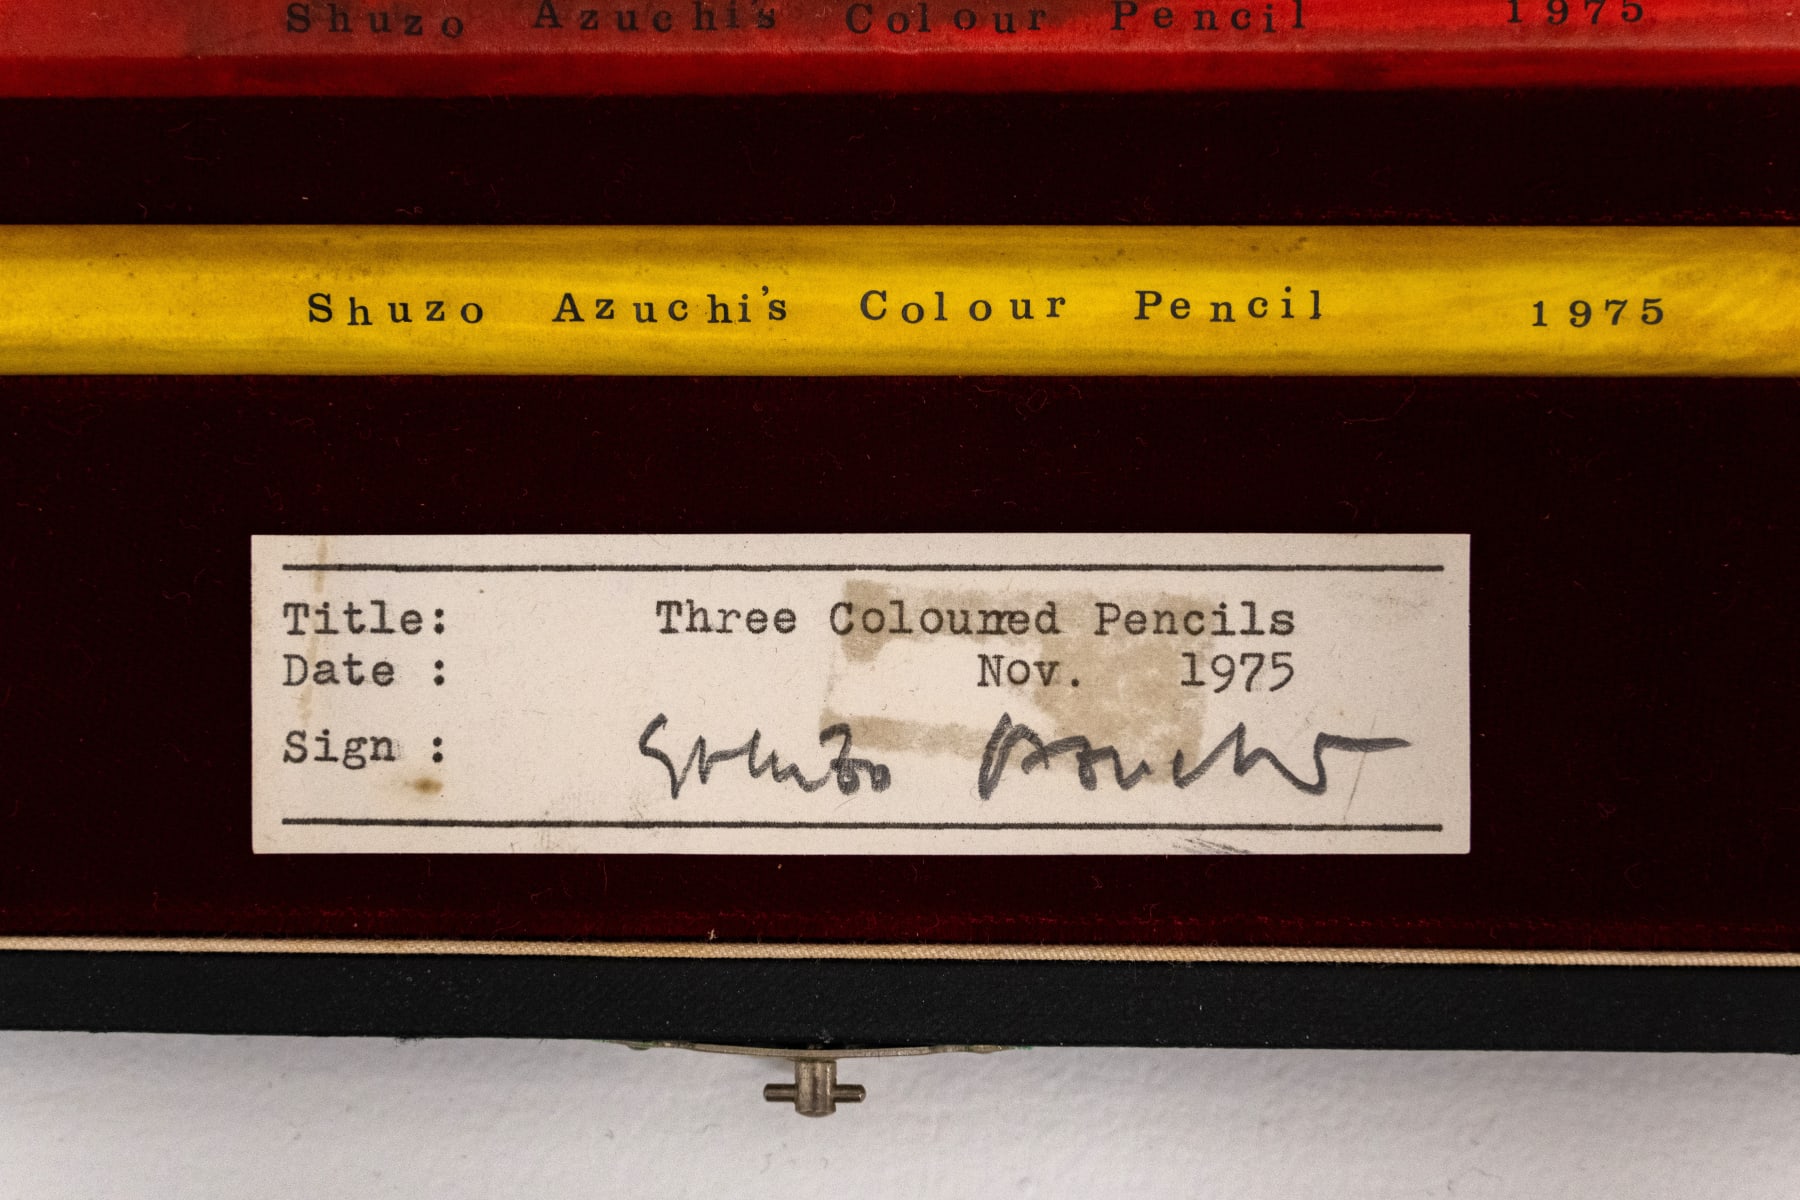 Shuzo Azuchi's Colour Pencil 1975
Shuzo Azuchi's Colour Pencil 1975
Title: Three Coloured Pencils
Date : Nov. 1975
Sign : Shuzo Azuchi